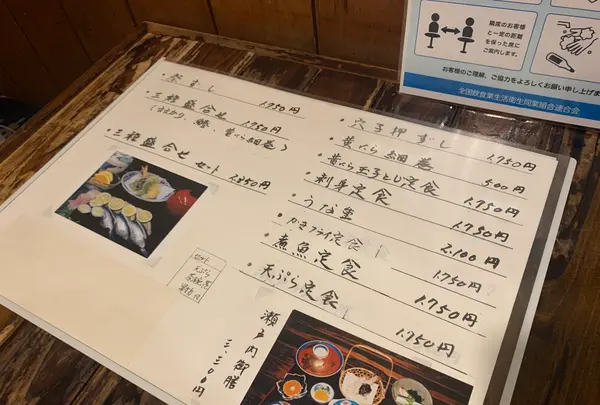 ・祭ずし 1,950円
・三種盛合せ 1,950円
・三種盛合せセット 1,850円
セット
天ぷら
茶碗蒸
・穴子押ずし 1,750円
・黄にら細巻 500円
・黄にら玉子とじ定食 1,750円
・刺身定食 1,750円
・うな重 2,100円
・かきフライ定食 1,750円
・煮魚定食 1,750円
・天ぷら定食 1,750円
瀬戸内御膳
三、三〇〇円
隣席のお客様
と一定の距離
を保った席に
ご案内します。
お客様のご理解、ご協力をよろしくお願い申し上げま
全国飲食業生活衛生同業組合連合会